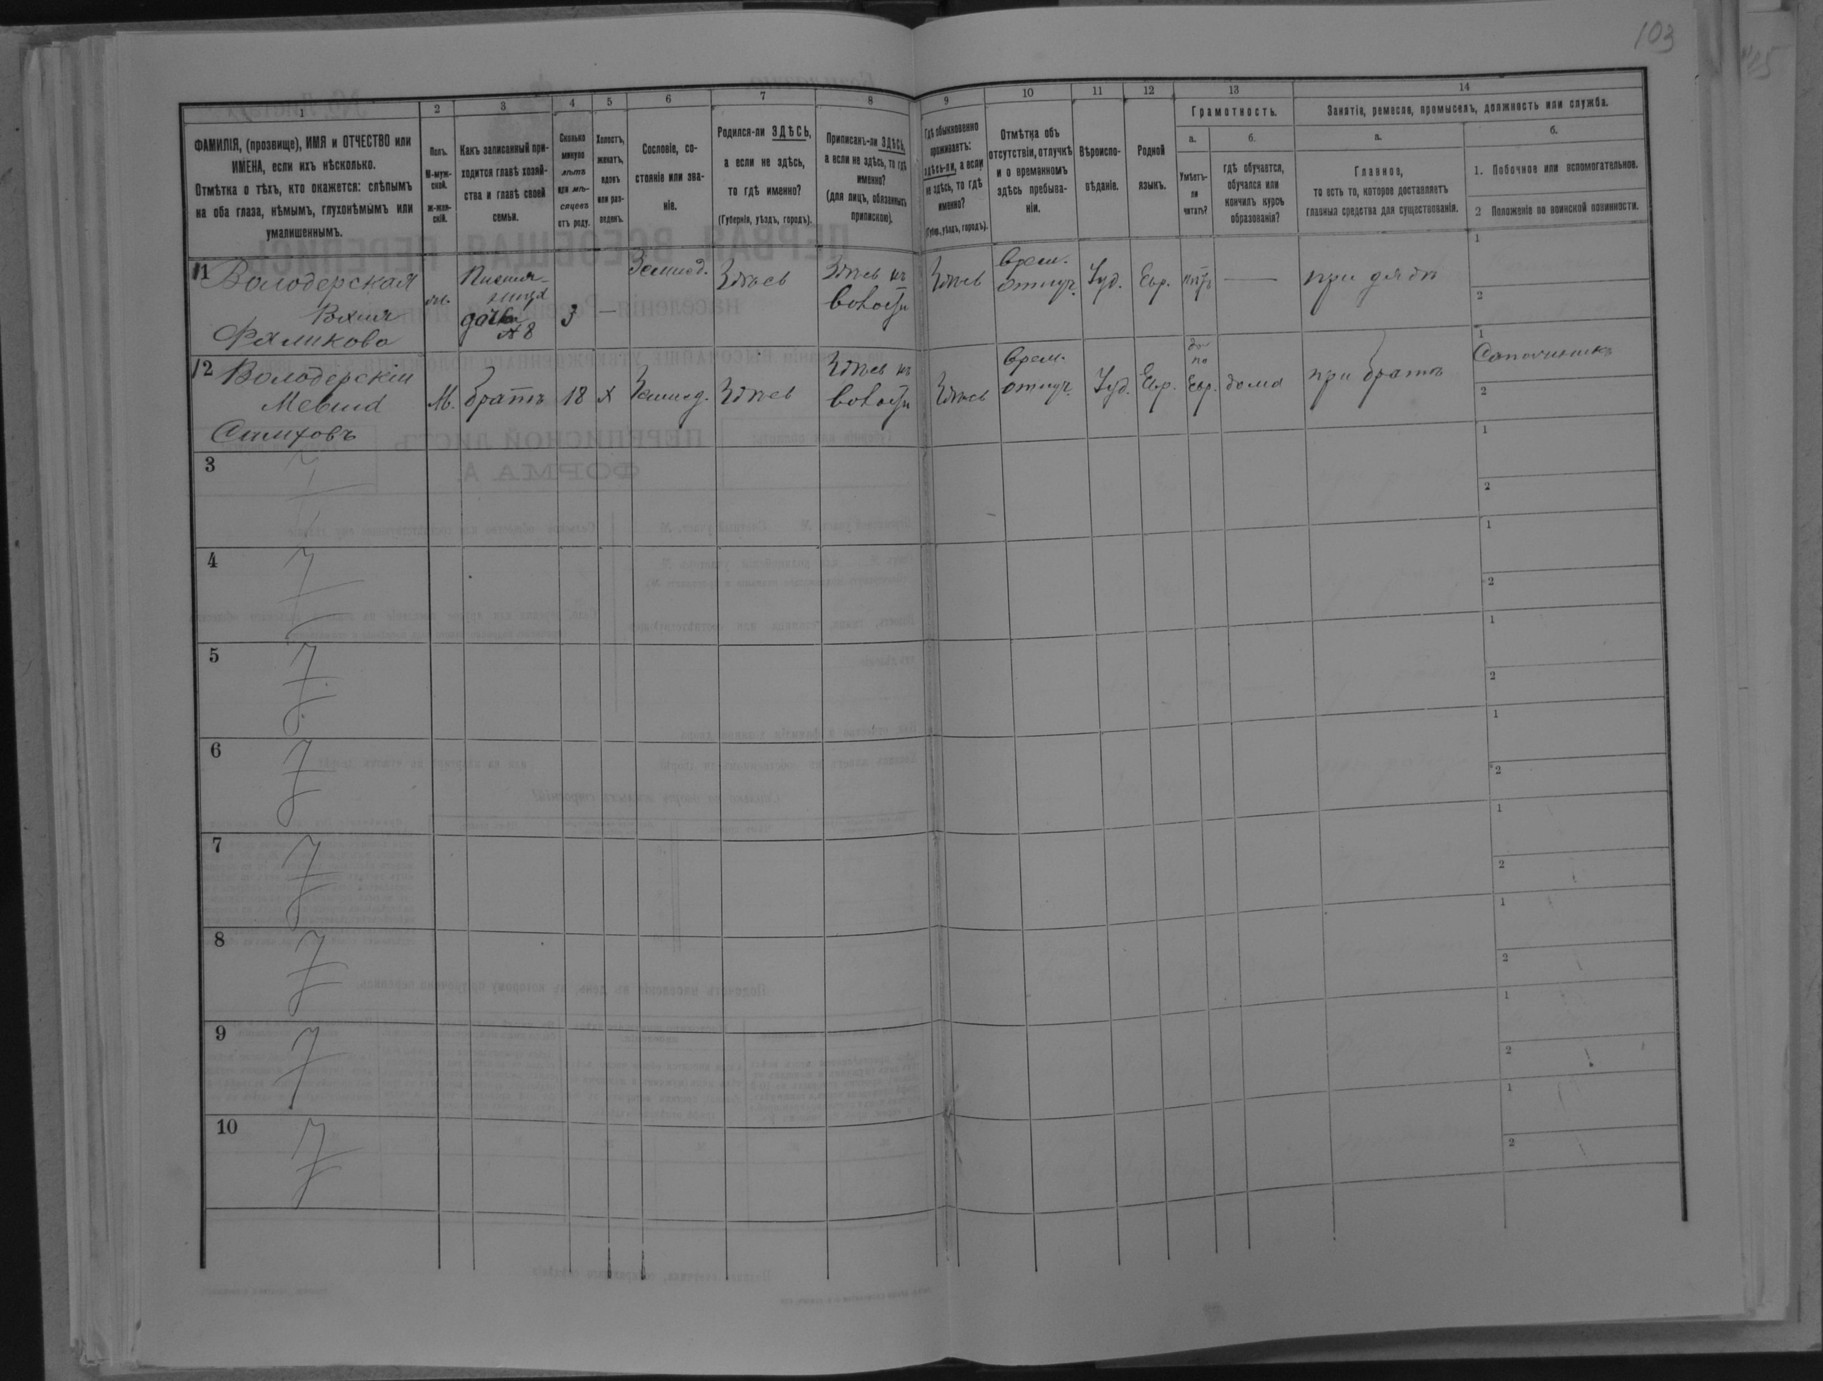 103
1
2
3
4
5
6
7
8
9
10
11
12
13
14
ФАМИЛІЯ, (прозвище), ИМЯ и ОТЧЕСТВО или
ИМЕНА, если ихъ нѣсколько.
Отмѣтка о тѣхъ, кто окажется: слѣпымъ
на оба глаза, нѣмымъ, глухонѣмымъ или
умалишеннымъ.
Полъ.
М-муж-
ской.
ж-жен-
скій.
Какъ записанный при-
ходится главѣ хозяй-
ства и главѣ своей
семьи.
Сколько
минуло
лѣтъ
или мѣ-
сяцевъ
отъ роду.
Холостъ,
женатъ,
вдовъ
или раз-
веденъ.
Сословіе, со-
стояніе или зва-
ніе.
Родился-ли ЗДѢСЬ,
а если не здѣсь,
то гдѣ именно?
(Губернія, уѣздъ, городъ).
Приписанъ-ли ЗДѢСЬ,
а если не здѣсь, то гдѣ
именно?
(для лицъ, обязанныхъ
припискою).
Гдѣ обыкновенно
проживаетъ:
здѣсь-ли, а если
не здѣсь, то гдѣ
именно?
(Губ., уѣздъ, городъ).
Отмѣтка объ
отсутствіи, отлучкѣ
и о временномъ
здѣсь пребыва-
ніи.
Вѣроиспо-
вѣданіе.
Родной
языкъ.
Грамотность.
а.
б.
Умѣетъ-
ли
читать?
гдѣ обучается,
обучался или
кончилъ курсъ
образованія?
Занятія, ремесло, промыселъ, должность или служба.
а.
б.
Главное,
то есть то, которое доставляетъ
главныя средства для существованія.
1. Побочное или вспомогательное.
2 Положеніе по воинской повинности.
11 Володерская
Фаликова
дочь
А8
3
—
Землед.
Здѣсь
Здѣсь къ
волости
Здѣсь
врем.
отлуч.
Іуд.
Евр.
нѣтъ
—
при дядѣ
1
2
12 Володерскій
М.
братъ
18
х
Землед.
Здѣсь
Здѣсь къ
волости
Здѣсь
врем.
отлуч.
Іуд.
Евр.
да
по
Евр.
дома
при братѣ
1
Сапожникъ
2
3
1
2
4
1
2
5
1
2
6
1
2
7
1
2
8
1
2
9
1
2
10
1
2